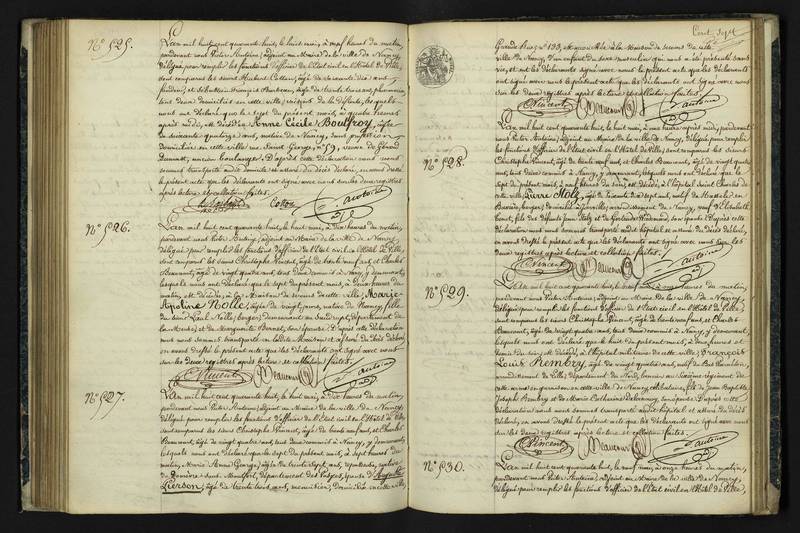 N.° 525.
L'an mil huit cent quarante huit, le huit mai, à neuf heures du matin,
pardevant nous Victor Antoine, adjoint au Maire de la ville de Nancy,
délégué pour remplir les fonctions d'officier de l'État civil en l'Hôtel de Ville,
sont comparus les sieurs
tous deux domiciliés en cette ville; de la défunte, lesquels
nous ont déclaré que le sept du présent mois, à quatre heures
après midi, est décédée Anne Cécile Boulfroy, âgée
de soixante quatorze ans, native de Nancy, sans profession
domiciliée en cette ville rue Saint George, n.° 59, veuve de
boulanger. D'après cette déclaration nous nous
sommes transporté audit domicile et assuré du décès déclaré, en avons dressé
le présent acte que les déclarants ont signé avec nous sur les deux registres
après lecture et collation faites.
V. Antoine
N.° 526.
L'an mil huit cent quarante huit, le huit mai, à dix heures du matin,
pardevant nous Victor Antoine, adjoint au Maire de la ville de Nancy,
délégué pour remplir les fonctions d'officier de l'État civil en l'Hôtel de Ville,
sont comparus les sieurs Christophe Vincent, âgé de trente neuf ans, et Charles
Beaumont, âgé de vingt quatre ans, tous deux commis à Nancy, y demeurant,
lesquels nous ont déclaré que le sept du présent mois, à deux heures du
matin, est décédée, à la Maison de secours de cette ville, Marie-
Apoline Nolle, âgée de vingt ans, native de
du sieur Nolle, berger, demeurant au département de
la Meuse, et de Marguerite son épouse. D'après cette déclaration
nous nous sommes transporté en ladite Maison et assuré du décès déclaré,
en avons dressé le présent acte que les déclarants ont signé avec nous
sur les deux registres après lecture et collation faites.
C. Vincent V. Antoine
N.° 527.
L'an mil huit cent quarante huit, le huit mai, à dix heures du matin,
pardevant nous Victor Antoine, adjoint au Maire de la ville de Nancy,
délégué pour remplir les fonctions d'officier de l'État civil en l'Hôtel de Ville,
sont comparus les sieurs Christophe Vincent, âgé de trente neuf ans, et Charles
Beaumont, âgé de vingt quatre ans, tous deux commis à Nancy, y demeurant,
lesquels nous ont déclaré que le sept du présent mois, à sept heures du
matin, Marie Anne George, âgée de trente sept ans, native
de département des Vosges, épouse d'
Pierson, âgé de trente trois ans, menuisier, domicilié en cette ville,
Cent, sept
Grande Rue, n.° 133, est accouchée à la Maison de secours de cette
ville de Nancy, d'un enfant du sexe masculin qui nous a été présenté sans
vie, et ont les déclarants signé avec nous le présent acte
sur les deux registres après lecture et collation faites.
C. Vincent V. Antoine
N.° 528.
L'an mil huit cent quarante huit, le huit mai, à une heure après midi, pardevant
nous Victor Antoine, adjoint au Maire de la ville de Nancy, délégué pour remplir
les fonctions d'officier de l'État civil en l'Hôtel de Ville, sont comparus les sieurs
Christophe Vincent, âgé de trente neuf ans, et Charles Beaumont, âgé de vingt quatre
ans, tous deux commis à Nancy, y demeurant, lesquels nous ont déclaré que le
sept du présent mois, à neuf heures du soir, est décédé, à l'hôpital Saint Charles de
cette ville, Pierre Stolz, âgé de soixante dix sept ans, natif de
arrondissement de Nancy, veuf de Elisabeth
fils des défunts Jean Stolz et de Gertrude son épouse. D'après cette
déclaration nous nous sommes transporté audit hôpital et assuré du décès déclaré,
en avons dressé le présent acte que les déclarants ont signé avec nous sur les
deux registres après lecture et collation faites.
C. Vincent V. Antoine
N.° 529.
L'an mil huit cent quarante huit, le neuf mai, à heures du matin,
pardevant nous Victor Antoine, adjoint au Maire de la ville de Nancy,
délégué pour remplir les fonctions d'officier de l'État civil en l'Hôtel de Ville,
sont comparus les sieurs Christophe Vincent, âgé de trente neuf ans, et Charles
Beaumont, âgé de vingt quatre ans, tous deux commis à Nancy, y demeurant,
lesquels nous ont déclaré que le huit du présent mois, à deux heures et
demie du soir, est décédé, à l'hôpital militaire de cette ville, François
Louis Rembry, âgé de vingt quatre ans, natif de
arrondissement de Lille, département du Nord, au sixième régiment de
en garnison en cette ville de Nancy, célibataire, fils de Jean Baptiste
Joseph Rembry et de Marie Catherine son épouse. D'après cette
déclaration nous nous sommes transporté audit hôpital et assuré du décès
déclaré, en avons dressé le présent acte que les déclarants ont signé avec nous
sur les deux registres après lecture et collation faites.
C. Vincent V. Antoine
N.° 530.
L'an mil huit cent quarante huit, le neuf mai, à onze heures du matin,
pardevant nous Victor Antoine, adjoint au Maire de la ville de Nancy,
délégué pour remplir les fonctions d'officier de l'État civil en l'Hôtel de Ville,